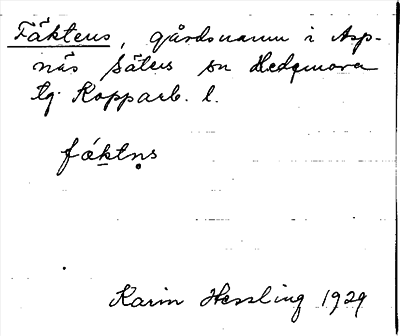 Fäktens, gårdsnamn i Asp-
näs Säters sn Hedemora
tg Kopparb. l.
fäktn̥s
Karin Hessling 1929